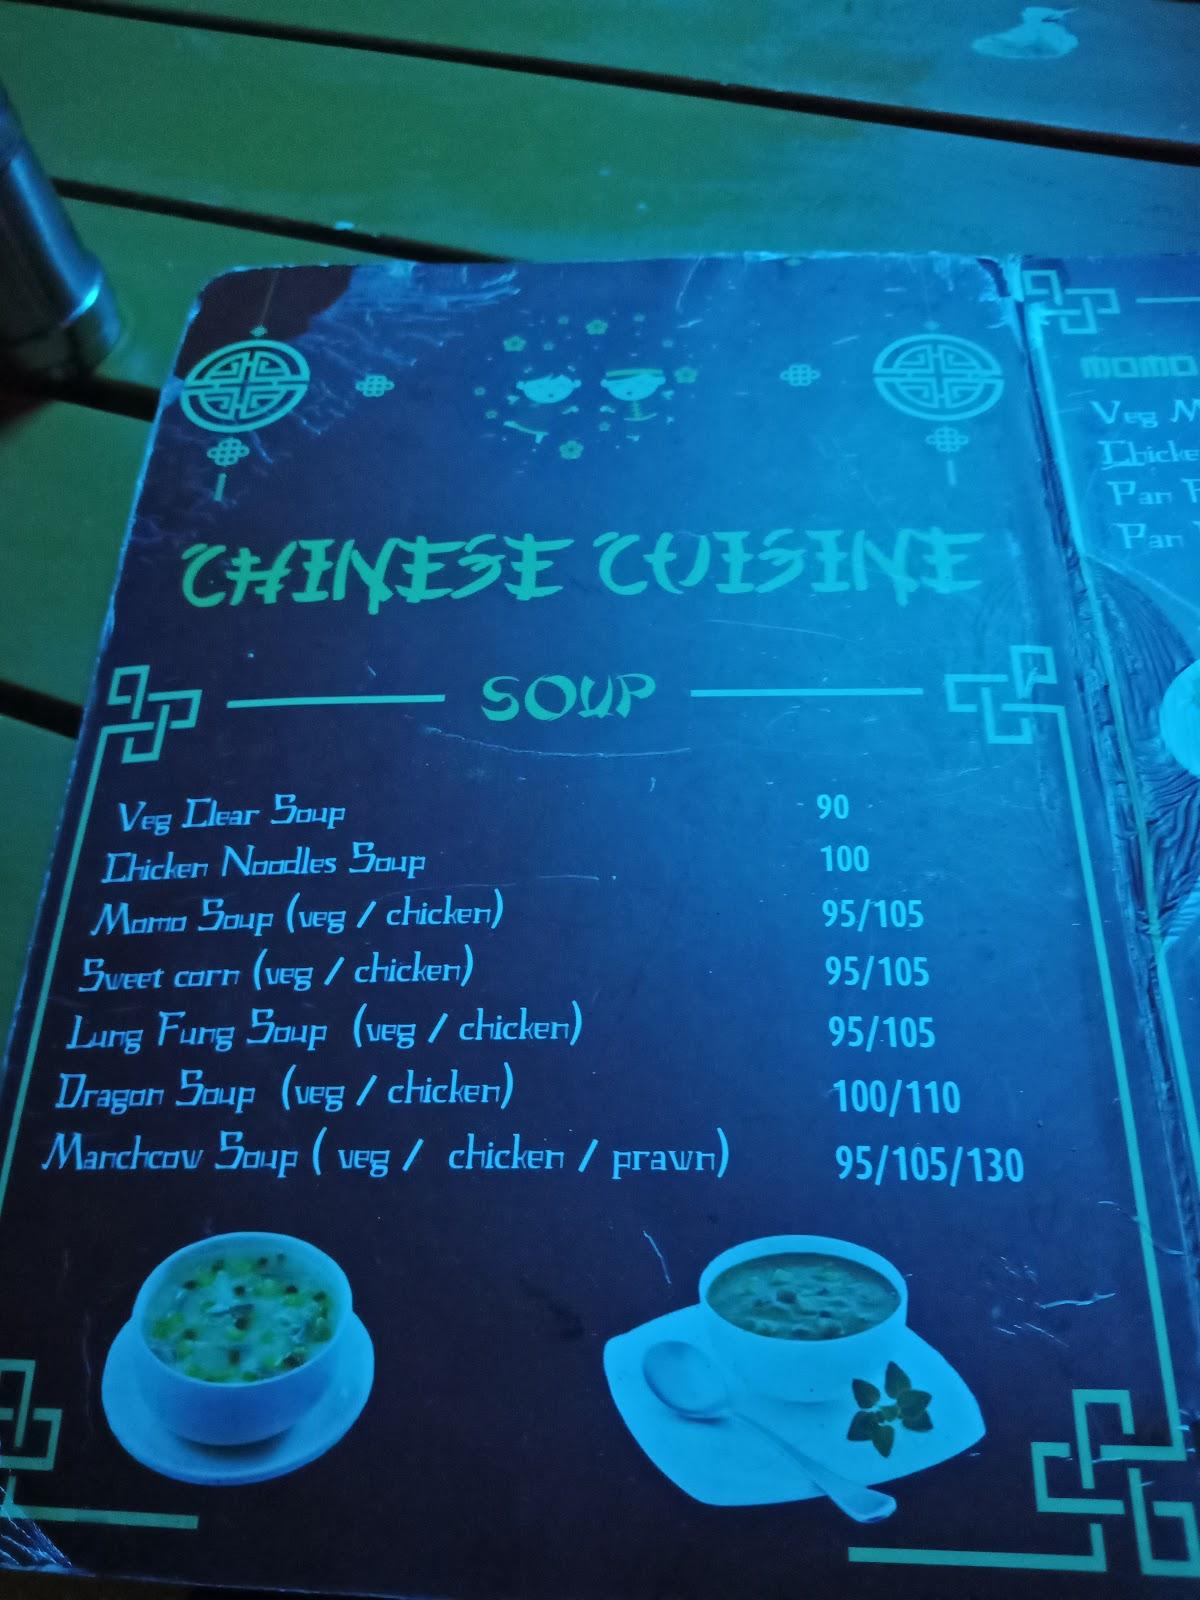 CHINESE CUISINE
SOUP
Veg Clear Soup 90
Chicken Noodles Soup 100
Momo Soup (veg / chicken) 95/105
Sweet corn (veg / chicken) 95/105
Lung Fung Soup (veg / chicken) 95/105
Dragon Soup (veg / chicken) 100/110
Manchcow Soup ( veg / chicken / prawn) 95/105/130
MOMO
Veg
Pan
Pan